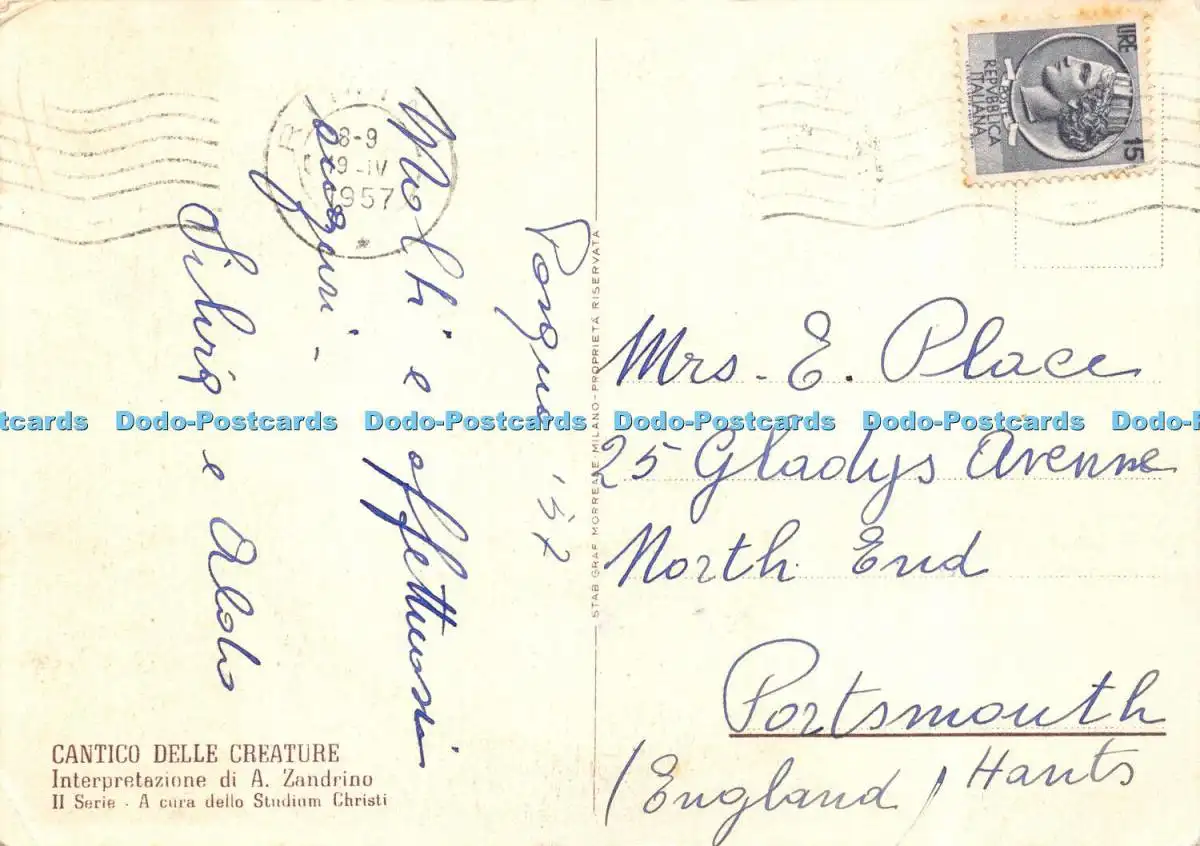 Pasqua '57
Molti e affettuosi
auguri -
Silvia e Aldo
CANTICO DELLE CREATURE
Interpretazione di A. Zandrino
II Serie - A cura dello Studium Christi
STAB GRAF MORREALE - MILANO - PROPRIETÀ RISERVATA
8-9
9-IV
1957
LIRE 15
POSTE
REPVBBLICA
ITALIANA
Mrs. E. Place
25 Gladys Avenue
North End
Portsmouth
(England) Hants
Dodo-Postcards Dodo-Postcards Dodo-Postcards Dodo-Postcards Dodo-Postcards